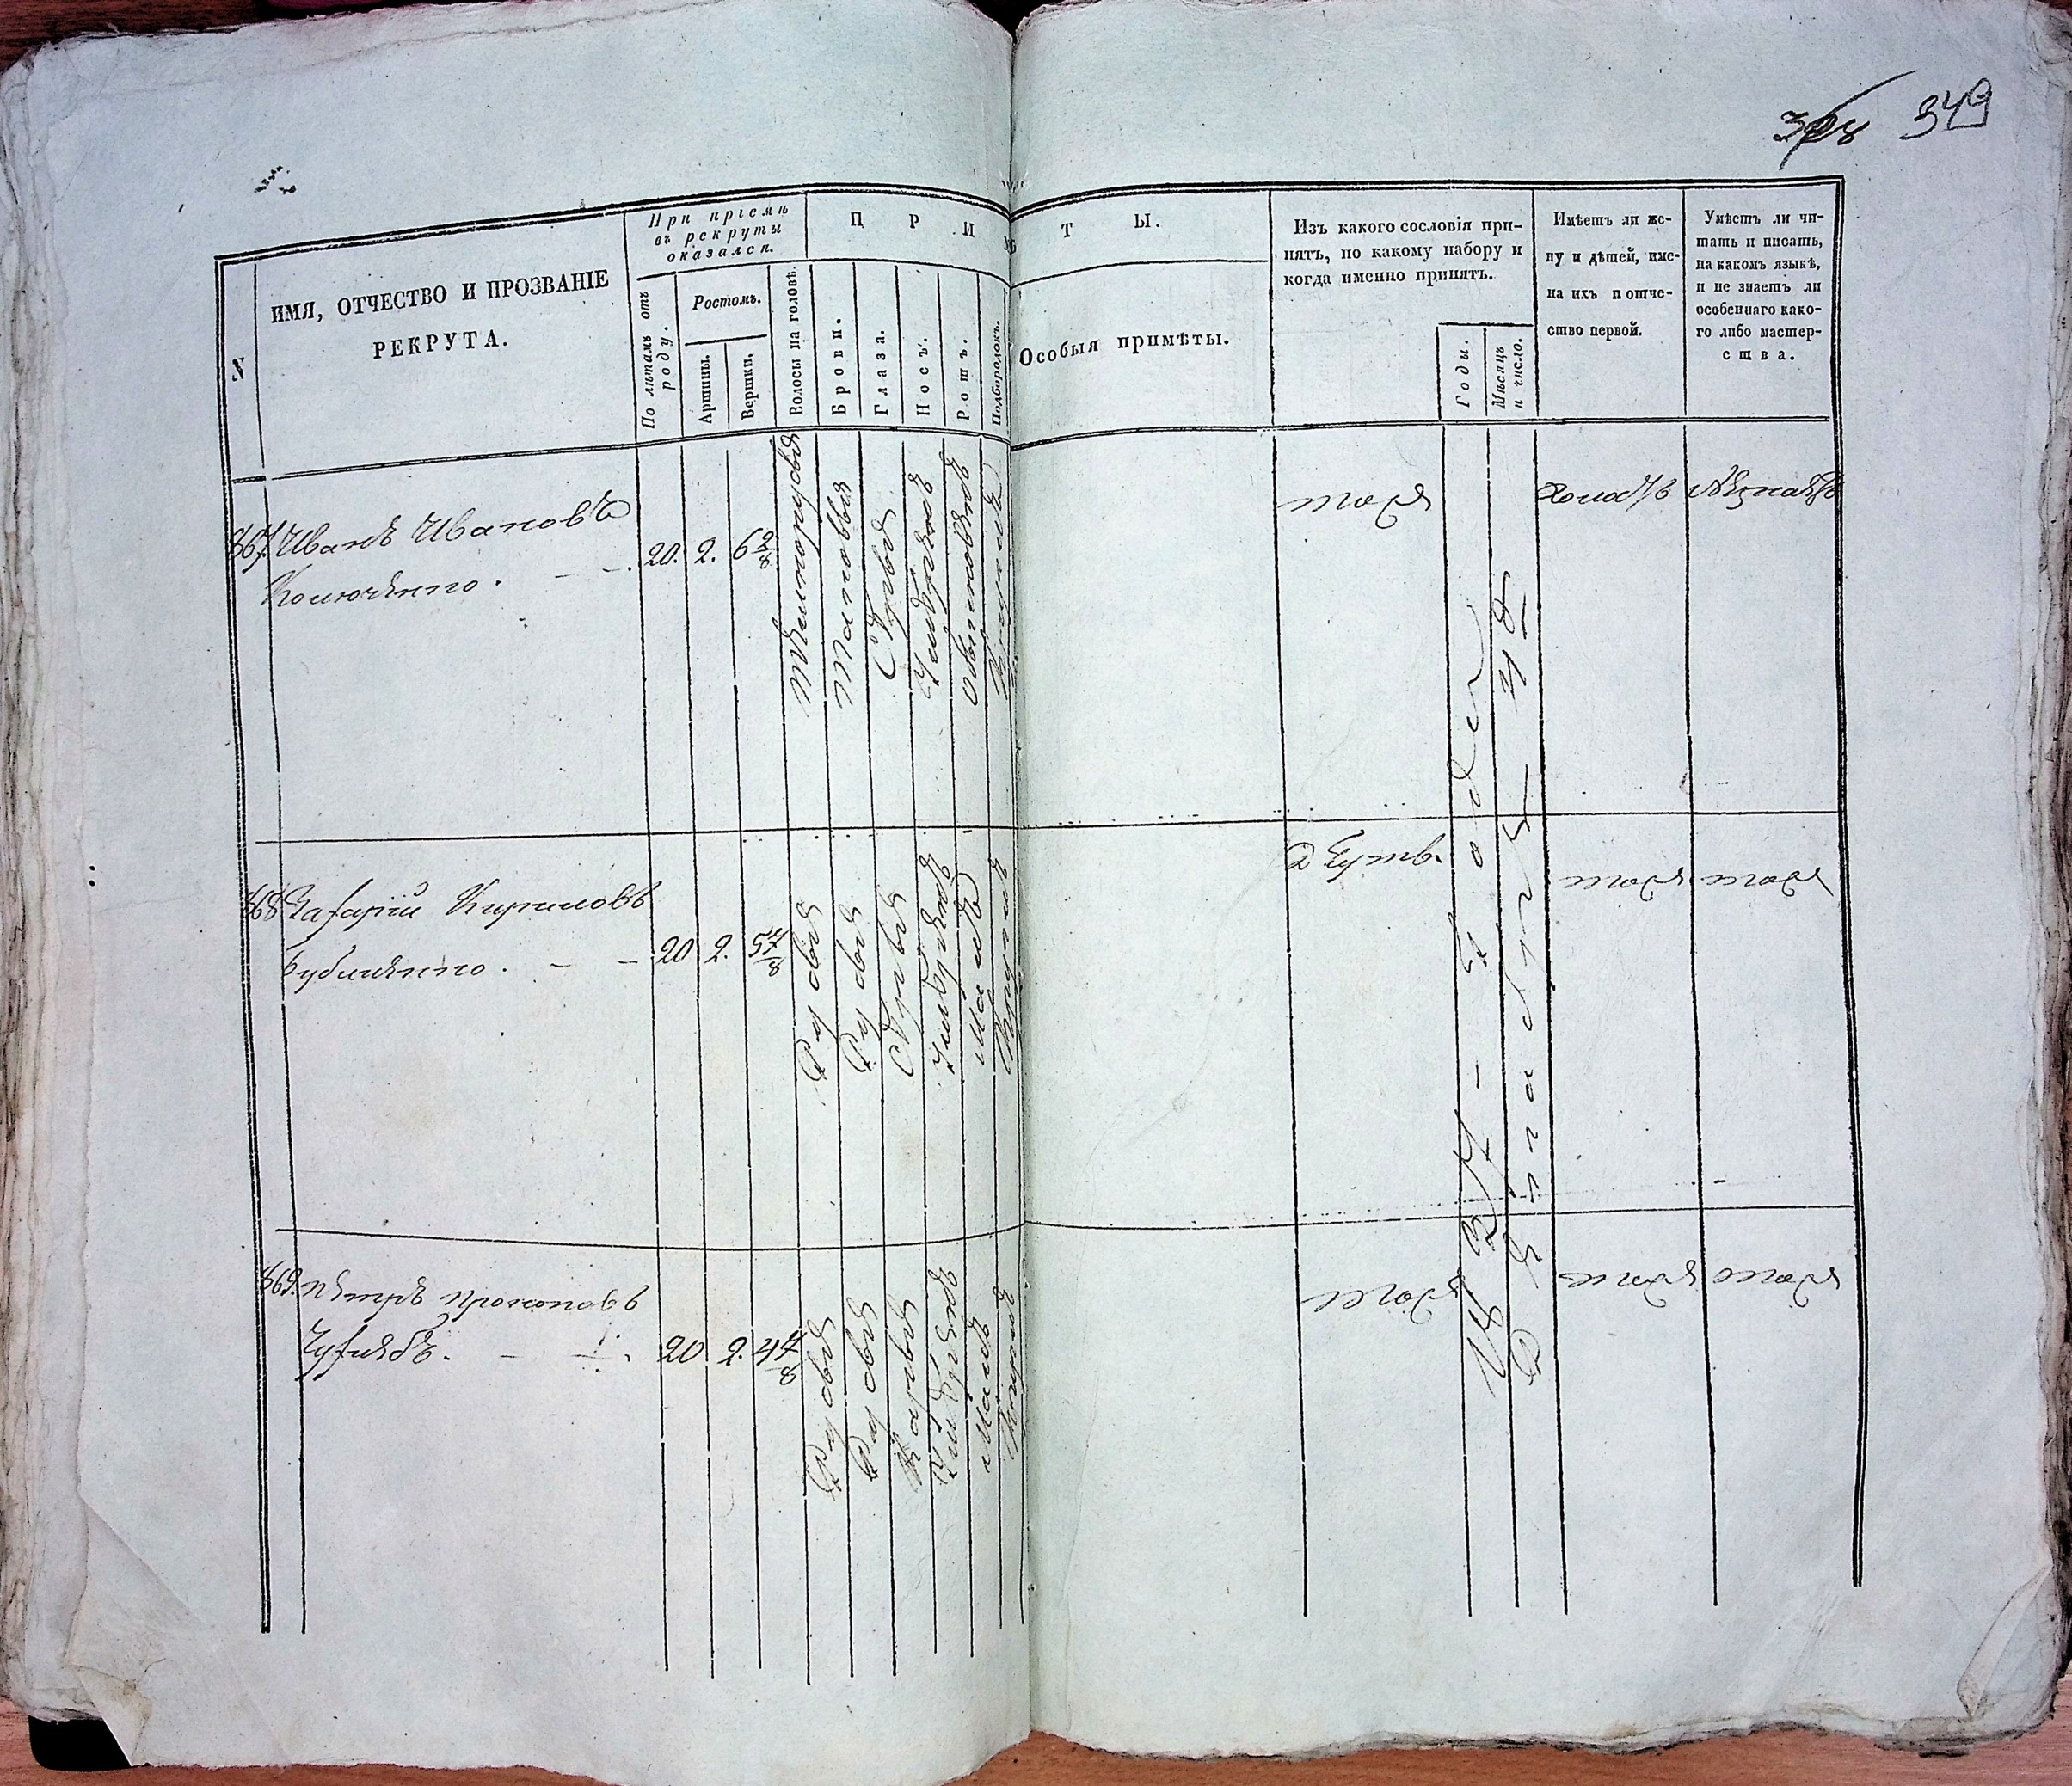 349
N
ИМЯ, ОТЧЕСТВО И ПРОЗВАНІЕ
РЕКРУТА.
При пріемѣ
въ рекруты
оказался.
По лѣтамъ отъ
роду.
Ростомъ.
Аршины.
Вершки.
ПРИМѢТЫ.
Волосы на головѣ.
Брови.
Глаза.
Носъ.
Ротъ.
Подбородокъ.
Особыя примѣты.
Изъ какого сословія при-
нятъ, по какому набору и
когда именно принятъ.
Годы.
Мѣсяцъ
и число.
Имѣетъ ли же-
ну и дѣтей, име-
на ихъ и отче-
ство первой.
Умѣетъ ли чи-
тать и писать,
на какомъ языкѣ,
и не знаетъ ли
особеннаго како-
го либо мастер-
ства.
867. Иванъ Ивановъ
20. 2. 6 2/8
Темнорусыя
Таковыя
Сѣрыя
Умѣренъ
Обыкновененъ
Круглъ
тоже
Холостъ
Незнаетъ
868 Захарій Кириловъ
20 2. 5 4/8
Русыя
Русыя
Сѣрыя
Умѣренъ
Малъ
Круглъ
тоже
тоже
869. Петръ Прокоповъ
20 2. 4 4/8
Русыя
Русыя
Карыя
Умѣренъ
Малъ
Круглъ
тоже
тоже
тоже
1834 - Года